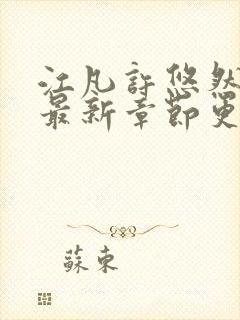 江凡許悠然
最新章節更
蘇東